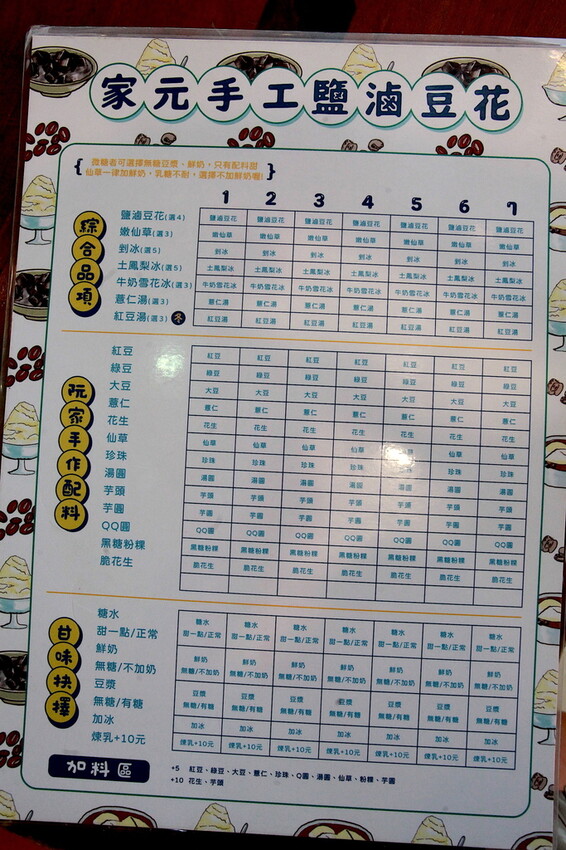 家元手工鹽滷豆花
{ 微糖者可選擇無糖豆漿、鮮奶，只有配料甜
仙草一律加鮮奶，乳糖不耐，選擇不加鮮奶喔! }
1 2 3 4 5 6 7
綜合品項
鹽滷豆花(選4) 鹽滷豆花 鹽滷豆花 鹽滷豆花 鹽滷豆花 鹽滷豆花 鹽滷豆花 鹽滷豆花
嫩仙草(選3) 嫩仙草 嫩仙草 嫩仙草 嫩仙草 嫩仙草 嫩仙草 嫩仙草
剉冰(選5) 剉冰 剉冰 剉冰 剉冰 剉冰 剉冰 剉冰
土鳳梨冰(選5) 土鳳梨冰 土鳳梨冰 土鳳梨冰 土鳳梨冰 土鳳梨冰 土鳳梨冰 土鳳梨冰
牛奶雪花冰(選3) 牛奶雪花冰 牛奶雪花冰 牛奶雪花冰 牛奶雪花冰 牛奶雪花冰 牛奶雪花冰 牛奶雪花冰
薏仁湯(選3) 薏仁湯 薏仁湯 薏仁湯 薏仁湯 薏仁湯 薏仁湯 薏仁湯
紅豆湯(選3) 冬 紅豆湯 紅豆湯 紅豆湯 紅豆湯 紅豆湯 紅豆湯 紅豆湯
阮家手作配料
紅豆 紅豆 紅豆 紅豆 紅豆 紅豆 紅豆 紅豆
綠豆 綠豆 綠豆 綠豆 綠豆 綠豆 綠豆 綠豆
大豆 大豆 大豆 大豆 大豆 大豆 大豆 大豆
薏仁 薏仁 薏仁 薏仁 薏仁 薏仁 薏仁 薏仁
花生 花生 花生 花生 花生 花生 花生 花生
仙草 仙草 仙草 仙草 仙草 仙草 仙草 仙草
珍珠 珍珠 珍珠 珍珠 珍珠 珍珠 珍珠 珍珠
湯圓 湯圓 湯圓 湯圓 湯圓 湯圓 湯圓 湯圓
芋頭 芋頭 芋頭 芋頭 芋頭 芋頭 芋頭 芋頭
芋圓 芋圓 芋圓 芋圓 芋圓 芋圓 芋圓 芋圓
QQ圓 QQ圓 QQ圓 QQ圓 QQ圓 QQ圓 QQ圓 QQ圓
黑糖粉粿 黑糖粉粿 黑糖粉粿 黑糖粉粿 黑糖粉粿 黑糖粉粿 黑糖粉粿 黑糖粉粿
脆花生 脆花生 脆花生 脆花生 脆花生 脆花生 脆花生 脆花生
甘味抉擇
糖水 糖水 糖水 糖水 糖水 糖水 糖水 糖水
甜一點/正常 甜一點/正常 甜一點/正常 甜一點/正常 甜一點/正常 甜一點/正常 甜一點/正常 甜一點/正常
鮮奶 鮮奶 鮮奶 鮮奶 鮮奶 鮮奶 鮮奶 鮮奶
無糖/不加奶 無糖/不加奶 無糖/不加奶 無糖/不加奶 無糖/不加奶 無糖/不加奶 無糖/不加奶 無糖/不加奶
豆漿 豆漿 豆漿 豆漿 豆漿 豆漿 豆漿 豆漿
無糖/有糖 無糖/有糖 無糖/有糖 無糖/有糖 無糖/有糖 無糖/有糖 無糖/有糖 無糖/有糖
加冰 加冰 加冰 加冰 加冰 加冰 加冰 加冰
煉乳+10元 煉乳+10元 煉乳+10元 煉乳+10元 煉乳+10元 煉乳+10元 煉乳+10元 煉乳+10元
加料區
+5 紅豆、綠豆、大豆、薏仁、珍珠、Q圓、湯圓、仙草、粉粿、芋圓
+10 花生、芋頭